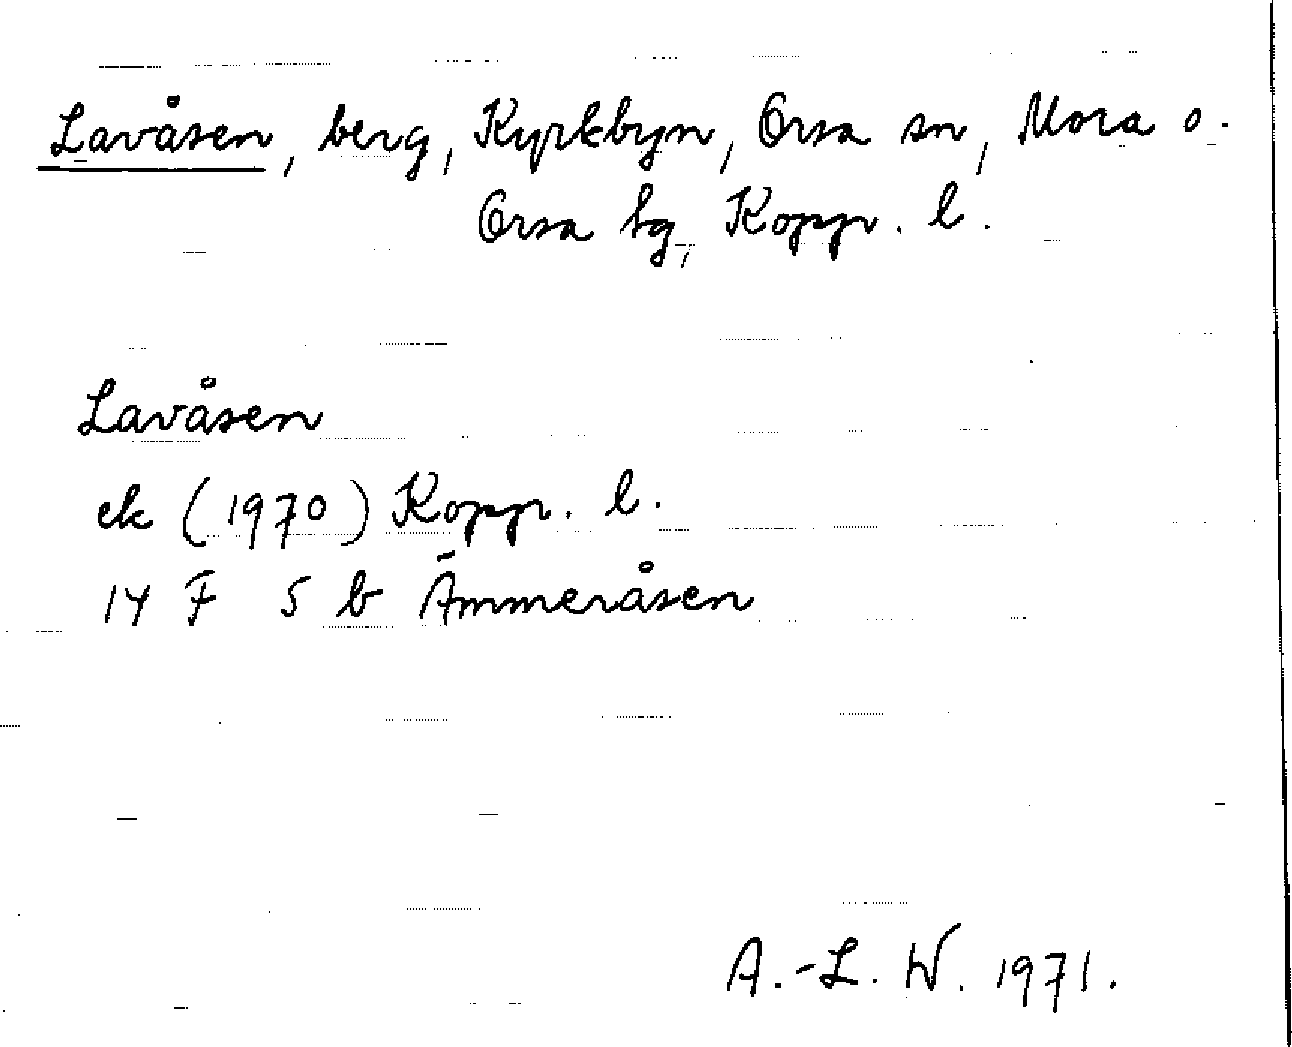 Lavåsen, berg, Kyrkbyn, Orsa sn, Mora o.
Orsa tg, Koppr. l.
Lavåsen
ek (1970) Koppr. l.
14 F 5 b Ämmeråsen
A.-L. W. 1971.